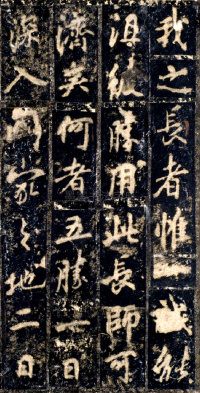 我之長者惟一誠能
沮彼勝用此長師可
濟矣何者五勝一曰
深入國家之地二曰